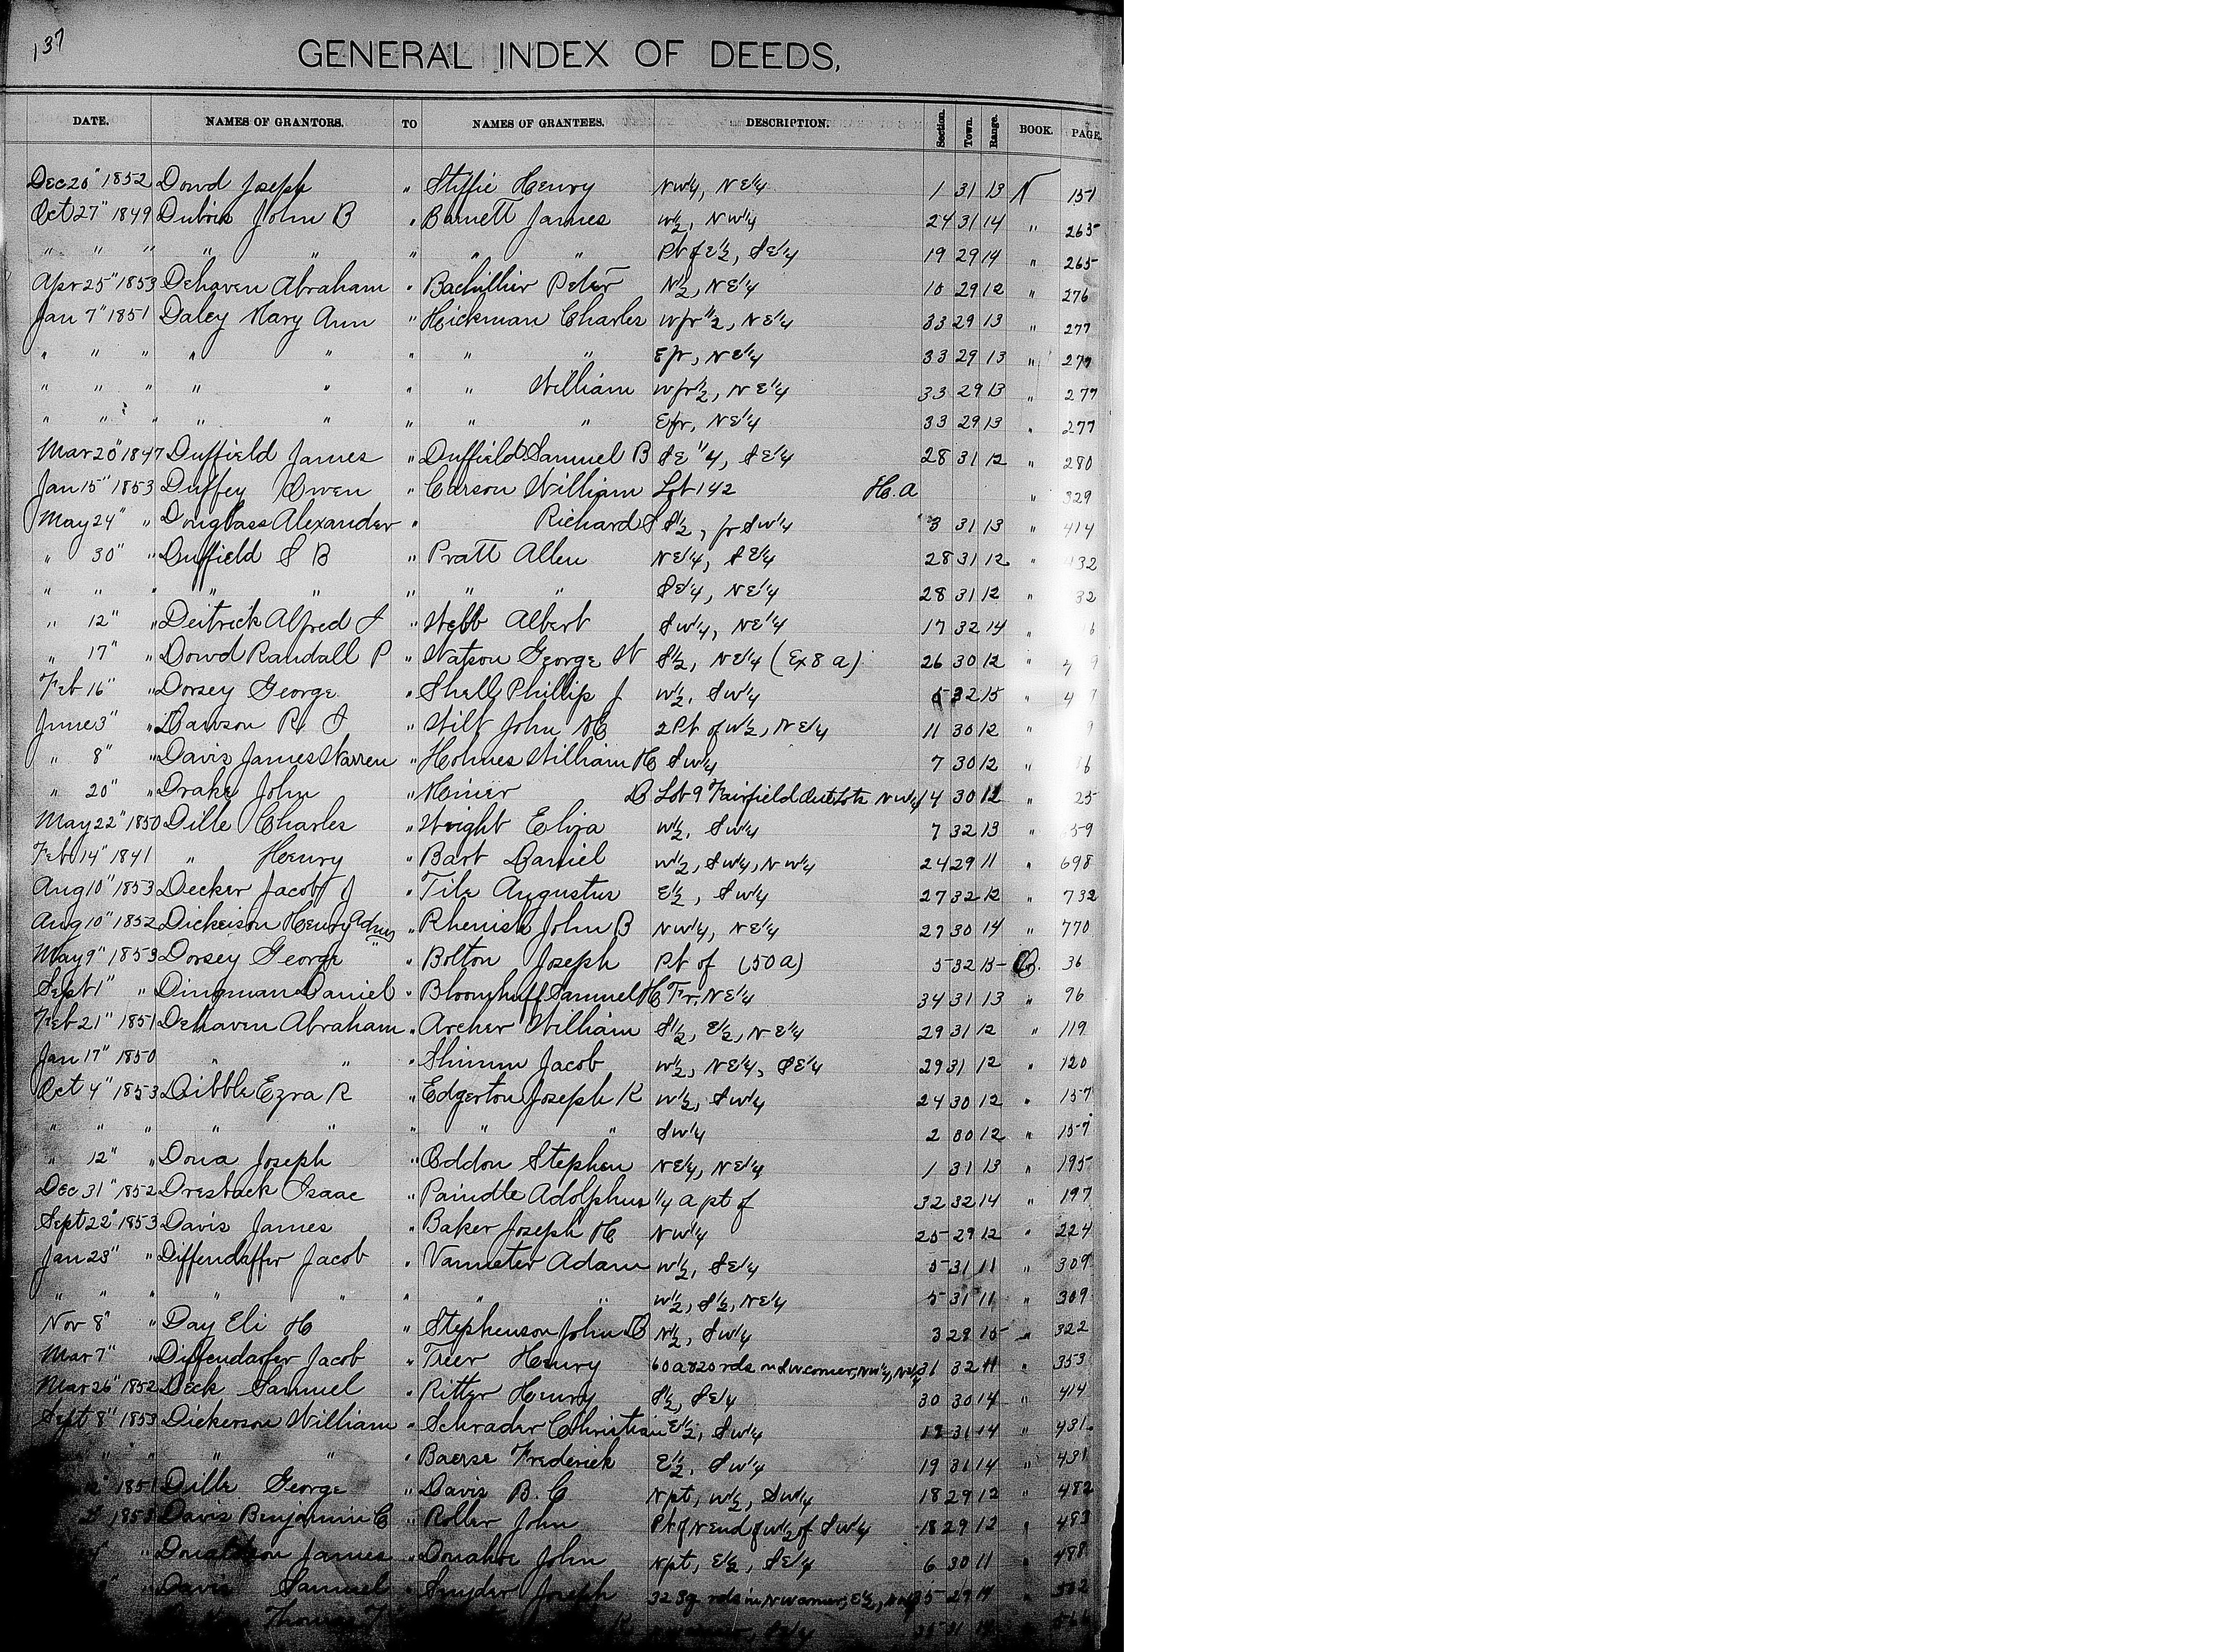 137
GENERAL INDEX OF DEEDS,
DATE. NAMES OF GRANTORS. TO NAMES OF GRANTEES. DESCRIPTION. Section. Town. Range. BOOK. PAGE.
Dec 20" 1852 Dowd Joseph " Henry NW1/4, NE1/4 1 31 13 N 151
Oct 27" 1849 John B " Barnett James W1/2, NW1/4 24 31 14 " 265
" " " " " " " " Pt of E1/2, SE1/4 19 29 14 " 265
Apr 25" 1853 Dehaven Abraham " Peter N1/2, NE1/4 10 29 12 " 276
Jan 7" 1851 Daley Mary Ann " Hickman Charles W fr 1/2, NE1/4 33 29 13 " 277
" " " " " " " " E fr, NE1/4 33 29 13 " 277
" " " " " " " William W fr 1/2, NE1/4 33 29 13 " 277
" " " " " " " " E fr, NE1/4 33 29 13 " 277
Mar 20" 1847 Duffield James " Duffield Samuel B SE1/4, SE1/4 28 31 12 " 280
Jan 15" 1853 Duffey Owen " Carson William Lot 142 H.a " 329
May 24" " Douglass Alexander " Richard S S1/2, fr SW1/4 3 31 13 " 414
" 30" " Duffield S B " Pratt Allen NE1/4, SE1/4 28 31 12 " 432
" " " " " " " " SE1/4, NE1/4 28 31 12 " 32
" 12" " Deitrick Alfred J " Webb Albert SW1/4, NE1/4 17 32 14 " 6
" 17" " Dowd Randall P " Watson George W S1/2, NE1/4 (Ex 8 a) 26 30 12 "
Feb 16" " Dorsey George " Shell Phillip J W1/2, SW1/4 5 32 15 "
June 3" " Dawson R. J " Wilt John H 2 Pt of W1/2, NE1/4 11 30 12 "
" 8" " Davis James Warren " Holmes William H SW1/4 7 30 12 "
" 20" " Drake John " D Lot 9 Fairfield Outlots NW1/4 14 30 12 " 25
May 22" 1850 Dille Charles " Wright Eliza W1/2, SW1/4 7 32 13 " 59
Feb 14" 1841 " Henry " Bart Daniel W1/2, SW1/4, NW1/4 24 29 11 " 698
Aug 10" 1853 Decker Jacob J " Tile Augustus E1/2, SW1/4 27 32 12 " 732
Aug 10" 1852 Henry Admr " John B NW1/4, NE1/4 27 30 14 " 770
May 9" 1853 Dorsey George " Bolton Joseph Pt of (50 a) 5 32 15 O. 36
Sept 1" " Dingman Daniel " Bloomhuff Samuel H Fr. NE1/4 34 31 13 " 96
Feb 21" 1851 Dehaven Abraham " Archer William S1/2, E1/2, NE1/4 29 31 12 " 119
Jan 17" 1850 " " " Shimm Jacob W1/2, NE1/4, SE1/4 29 31 12 " 120
Oct 4" 1853 Dibble Ezra R " Edgerton Joseph K W1/2, SW1/4 24 30 12 " 157
" " " " " " " " SW1/4 2 30 12 " 157
" 12" " Doua Joseph " Oddon Stephen NE1/4, NE1/4 1 31 13 " 195
Dec 31" 1852 Dresback Isaac " Paindle Adolphus 1/4 a pt of 32 32 14 " 197
Sept 22" 1853 Davis James " Baker Joseph H NW1/4 25 29 12 " 224
Jan 28" " Diffendaffer Jacob " Vanmeter Adam W1/2, SE1/4 5 31 11 " 309
" " " " " " " " W1/2, S1/2, NE1/4 5 31 11 " 309
Nov 8" " Day Eli H " Stephenson John D N1/2, SW1/4 3 29 15 " 322
Mar 7" " Diffendaffer Jacob " Treer Henry 60 a 820 rds in SW corner, NW1/4, NE1/4 31 32 11 " 353
Mar 26" 1852 Deck Samuel " Ritter Henry S1/2, SE1/4 30 30 14 " 414
Sept 8" 1853 Dickerson William " Schrader Christian E1/2, SW1/4 19 31 14 " 431
" " " " " Baerse Frederick E1/2, SW1/4 19 31 14 " 431
1851 Dille George " Davis B. C N pt, W1/2, SW1/4 18 29 12 " 482
1853 Davis Benjamin C " Roller John Pt of N end of W1/2 of SW1/4 18 29 12 " 483
" Donaldson James " Donahoe John N pt, E1/2, SE1/4 6 30 11 " 488
" Davis Samuel " Snyder Joseph 32 Sq rds in NW corner, E1/2, 35 29 14 " 502
Thomas